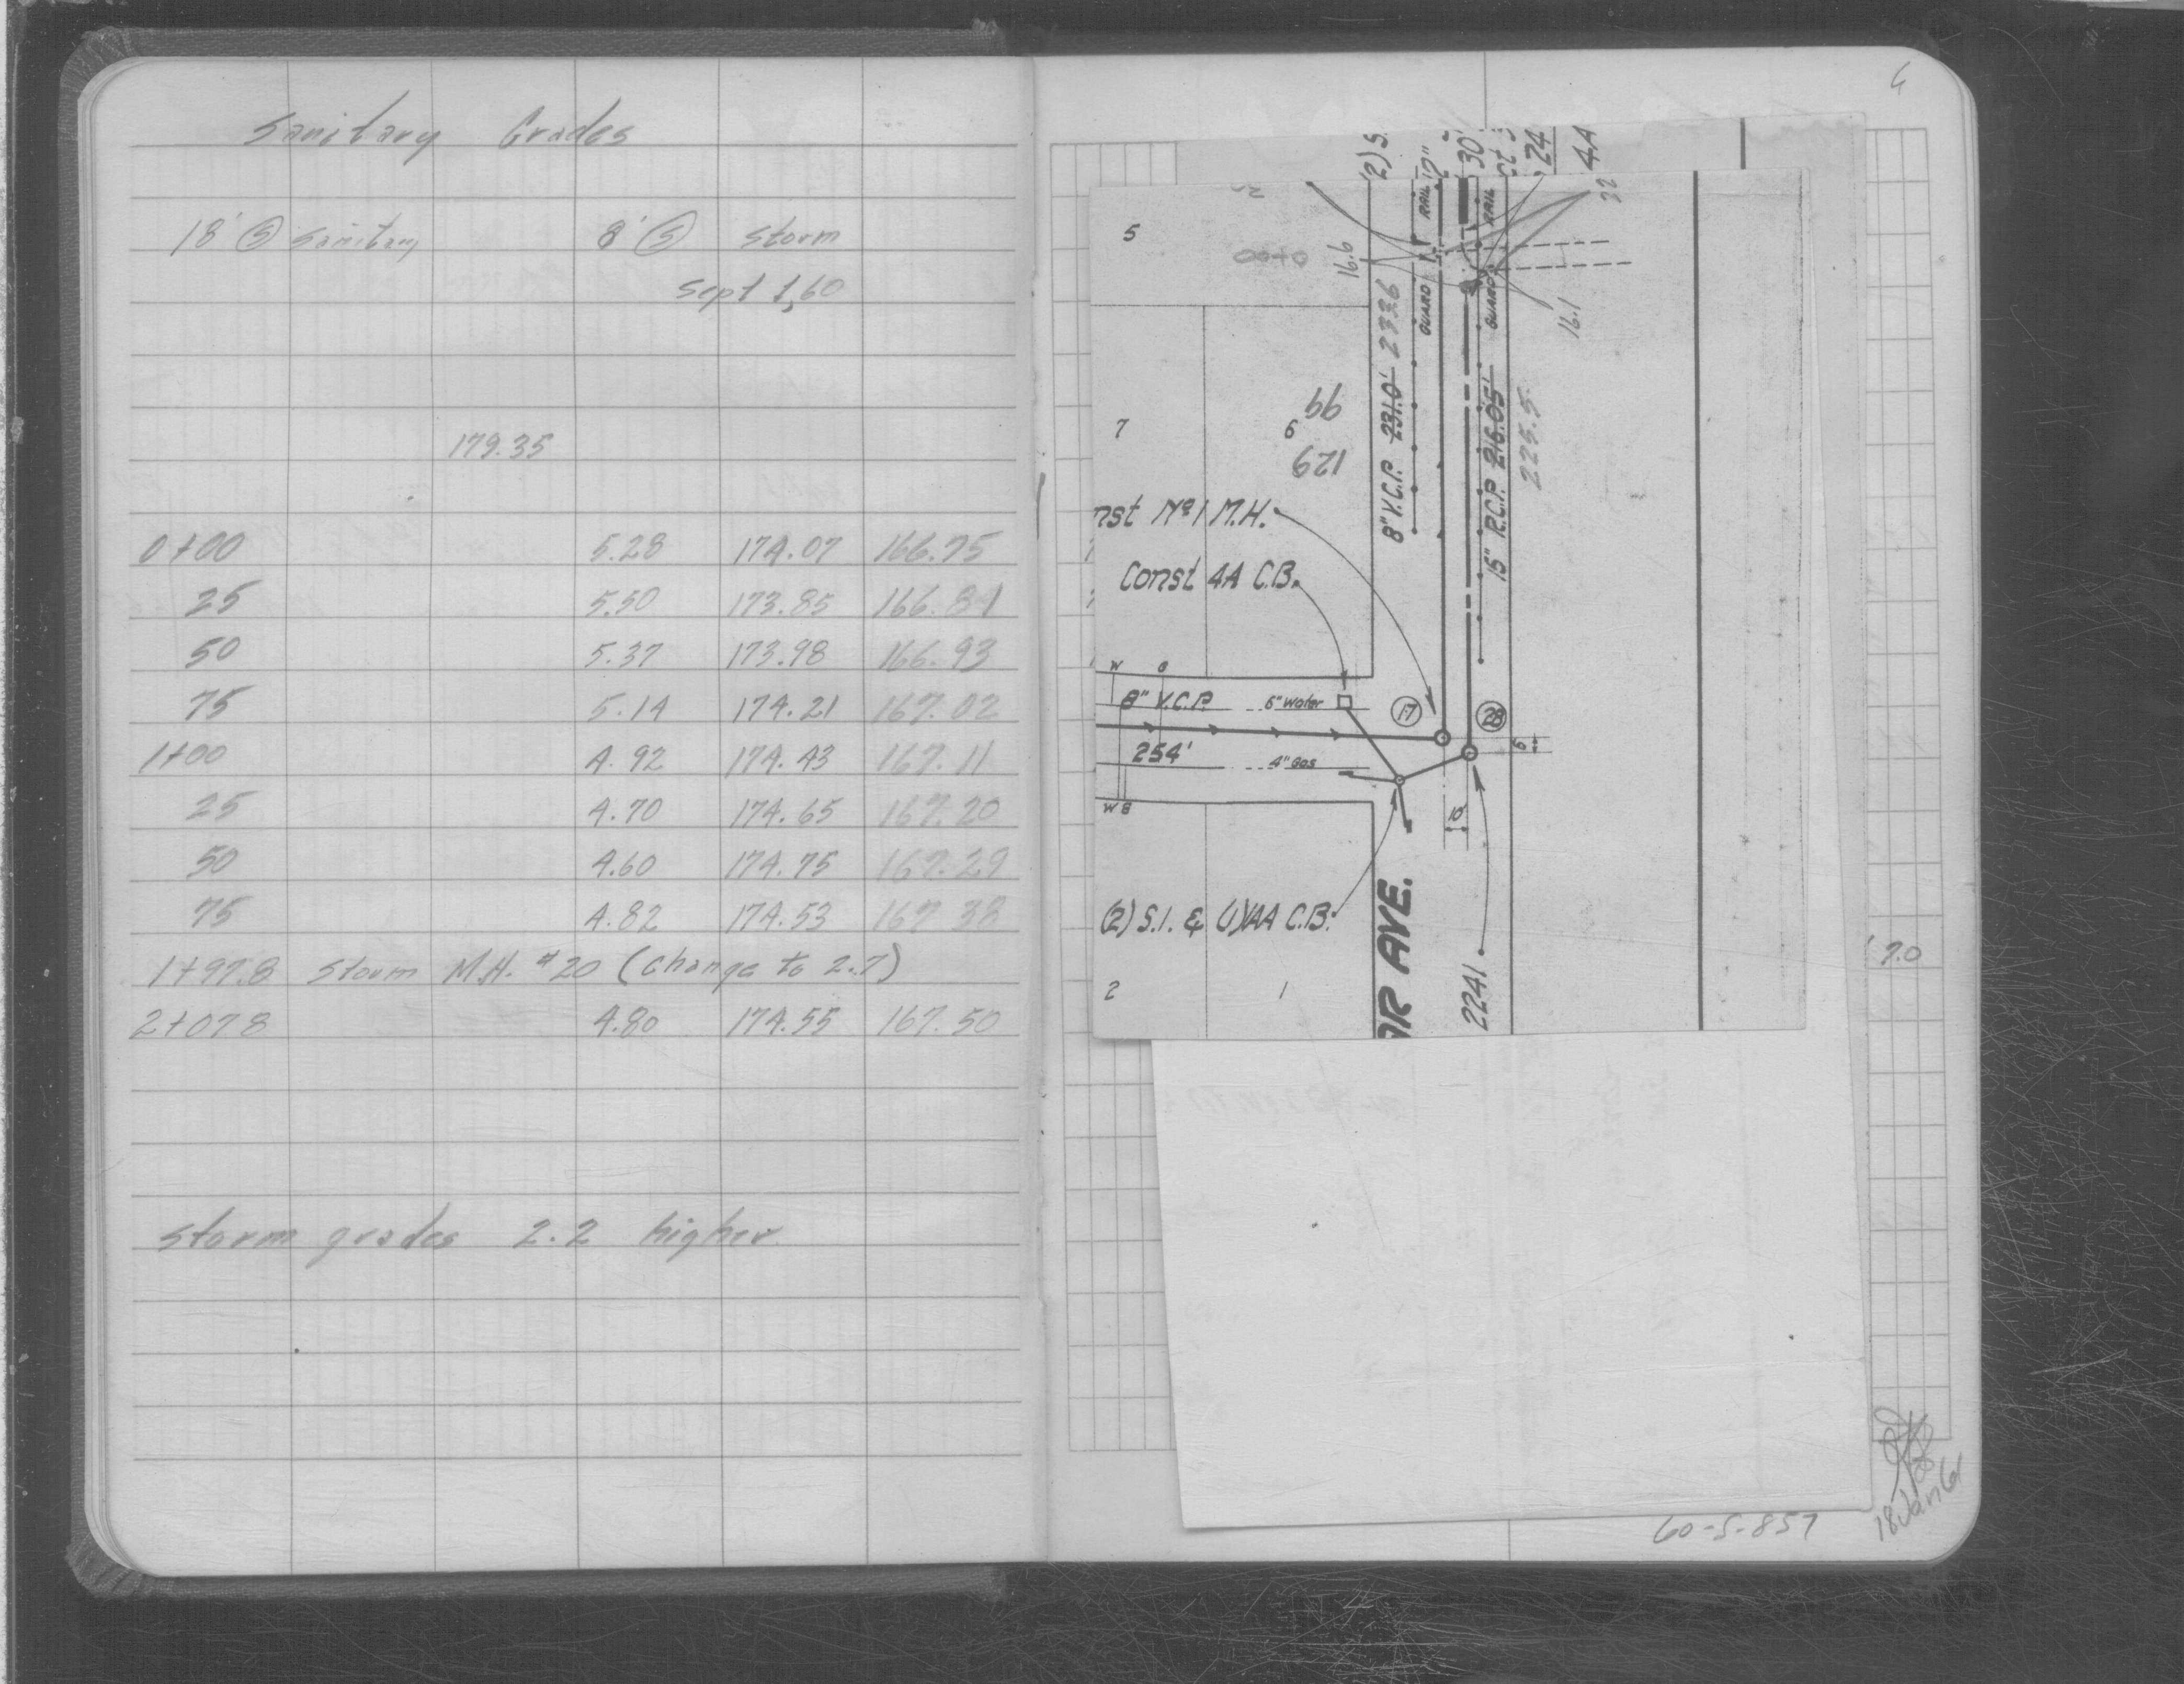 Sanitary Grades
18' Ⓢ Sanitary 8' Ⓢ Storm
Sept 1, 60
179.35
0+00 5.28 174.07 166.75
25 5.50 173.85 166.84
50 5.37 173.98 166.93
75 5.14 174.21 167.02
1+00 4.92 174.43 167.11
25 4.70 174.65 167.20
50 4.60 174.75 167.29
75 4.82 174.53 167.38
1+97.8 Storm M.H. #20 (Change to 2.7)
2+07.8 4.80 174.55 167.50
Storm grades 2.2 higher
(2) S.
12"
30'
24
4A
22
5
0+00
16.6
16.1
GUARD RAIL
GUARD RAIL
8" V.C.P. 231.0' 233.6
15" R.C.P. 216.05'
225.5
7
6
66
129
nst Nº 1 M.H.
Const 4A C.B.
W G
8" V.C.P. 6" Water
17
28
254' 4" Gas
6'
W G
10'
(2) S.I. & (1)4A C.B.
2 1
OR AVE.
2241
7.0
60-5-857
18 Jan 61